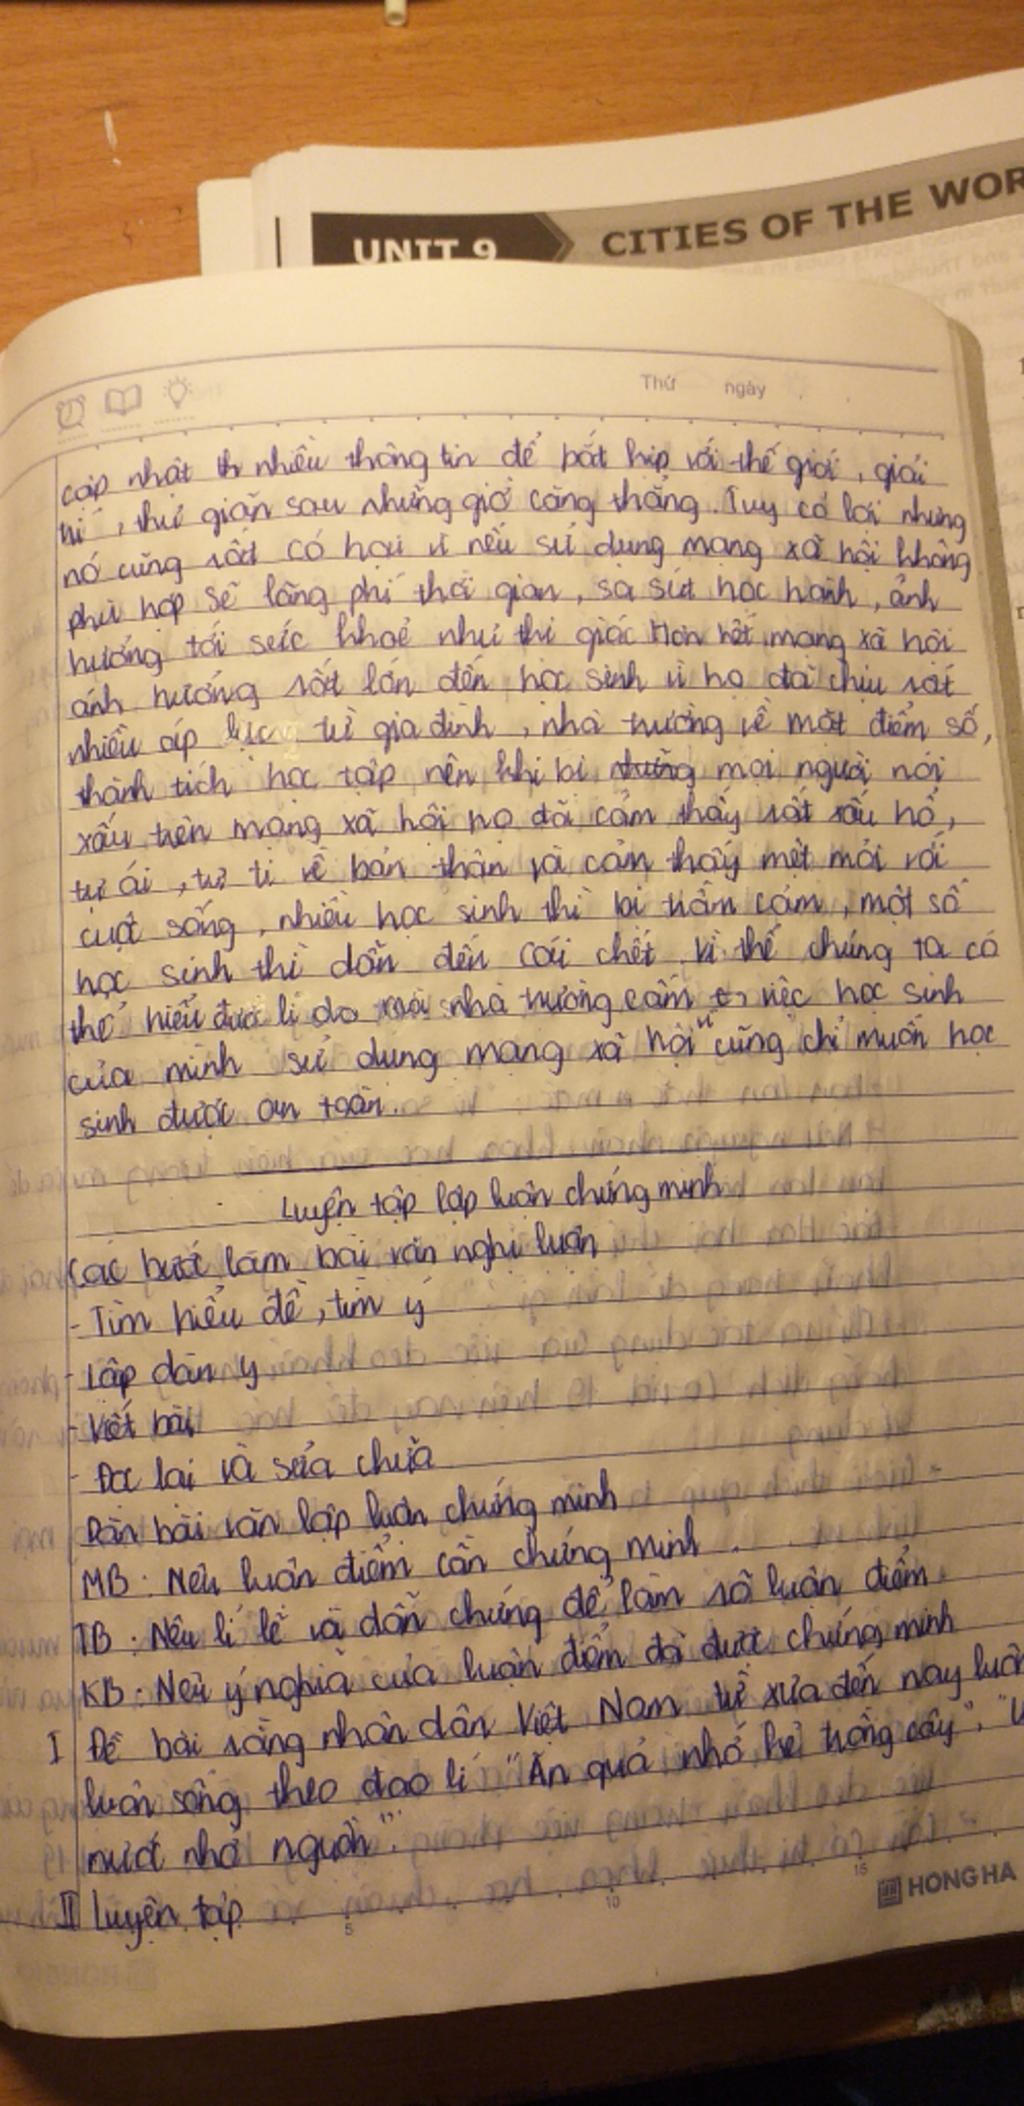 UNIT 9 CITIES OF THE WOR
Thứ ngày
cập nhật th nhiều thông tin để bắt kịp với thế giới, giải
trí, thư giãn sau những giờ căng thẳng. Tuy có lợi nhưng
nó cũng rất có hại vì nếu sử dụng mạng xã hội không
phù hợp sẽ lãng phí thời gian, sa sút học hành, ảnh
hưởng tới sức khoẻ như thị giác Hơn hết, mạng xã hội
ảnh hưởng rất lớn đến học sinh vì họ đã chịu rất
nhiều áp lực từ gia đình, nhà trường về mặt điểm số,
thành tích học tập nên khi bị những mọi người nói
xấu trên mạng xã hội họ đã cảm thấy rất xấu hổ,
tự ái, tự ti về bản thân và cảm thấy mệt mỏi với
cuột sống, nhiều học sinh thì bị trầm cảm, một số
học sinh thì dẫn đến cái chết. Vì thế chúng ta có
thể hiểu được lí do mà nhà trường cấm việc học sinh
của mình sử dụng mạng xã hội" cũng chỉ muốn học
sinh được an toàn.
Luyện tập lập luận chứng minh
Các bước làm bài văn nghị luận
- Tìm hiểu đề, tìm ý
- Lập dàn ý
- Viết bài
- Đọc lại và sửa chữa
Dàn bài văn lập luận chứng minh
MB: Nêu luận điểm cần chứng minh
TB: Nêu lí lẽ và dẫn chứng để làm rõ luận điểm
KB: Nêu ý nghĩa của luận điểm đã được chứng minh
I Đề bài rằng nhân dân Việt Nam từ xưa đến nay luôn
luôn sống theo đạo lí "Ăn quả nhớ kẻ trồng cây", "U
nướt nhớ nguồn".
II Luyện tập
5 10 15
HONG HA